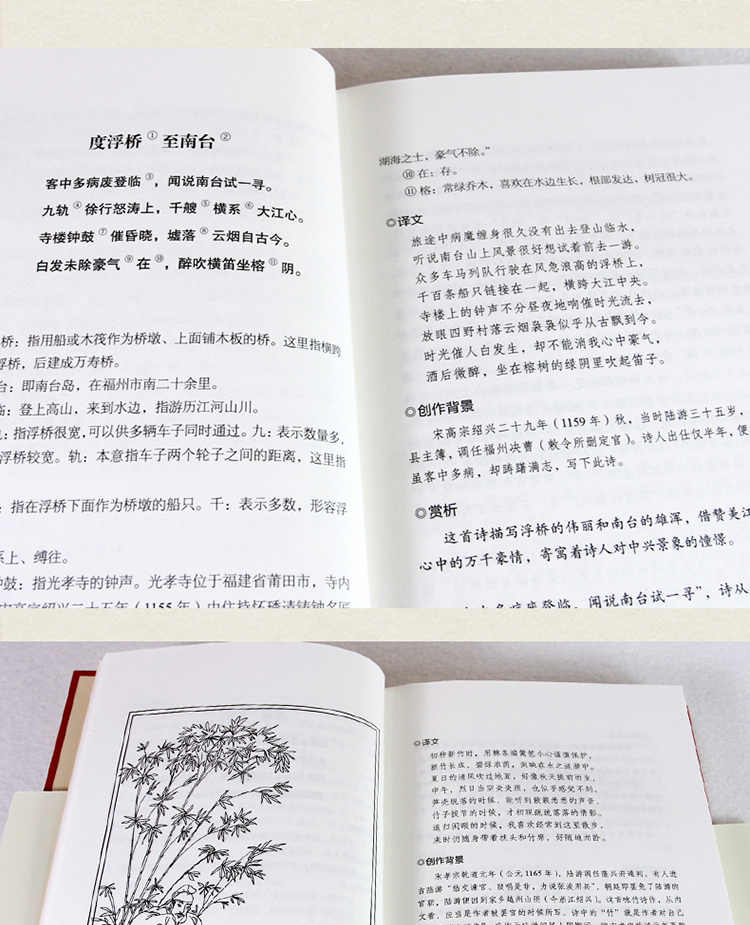 度浮桥①至南台②
客中多病废登临③,闻说南台试一寻。
九轨④徐行怒涛上,千艘⑤横系⑥大江心。
寺楼钟鼓⑦催昏晓,墟落⑧云烟自古今。
白发未除豪气⑨在⑩,醉吹横笛坐榕⑪阴。
桥:指用船或木筏作为桥墩、上面铺木板的桥。这里指横跨
浮桥,后建成万寿桥。
台:即南台岛,在福州市南二十余里。
临:登上高山,来到水边,指游历江河山川。
:指浮桥很宽,可以供多辆车子同时通过。九:表示数量多,
浮桥较宽。轨:本意指车子两个轮子之间的距离,这里指
:指在浮桥下面作为桥墩的船只。千:表示多数,形容浮
系上、缚往。
钟鼓:指光孝寺的钟声。光孝寺位于福建省莆田市,寺内
宋高宗绍兴二十五年(1155年)由住持怀琇请铸钟名匠
湖海之士,豪气不除。”
⑩在:存。
⑪榕:常绿乔木,喜欢在水边生长,根部发达,树冠很大。
◎译文
旅途中病魔缠身很久没有出去登山临水,
听说南台山上风景很好想试着前去一游。
众多车马列队行驶在风急浪高的浮桥上,
千百条船只链接在一起,横跨大江中央。
寺楼上的钟声不分昼夜地响催时光流去,
放眼四野村落云烟袅袅似乎从古飘到今。
时光催人白发生,却不能消我心中豪气,
酒后微醉,坐在榕树的绿阴里吹起笛子。
◎创作背景
宋高宗绍兴二十九年(1159年)秋,当时陆游三十五岁,
县主簿,调任福州决曹(敕令所删定官)。诗人出仕仅半年,便
虽客中多病,却踌躇满志,写下此诗。
◎赏析
这首诗描写浮桥的伟丽和南台的雄浑,借赞美江
心中的万千豪情,寄寓着诗人对中兴景象的憧憬。
多病废登临,闻说南台试一寻”,诗从
◎译文
初种新竹时,用棘条编篱笆小心谨慎保护,
新竹长成,碧绿浓荫,倒映在水之涟漪中。
夏日的清风吹过地面,好像秋天提前而至,
中午,烈日当空炎炎照,也似乎感觉不到。
笋壳脱落的时候,能听到簌簌悉悉的声音,
竹子拔节的时候,才初现疏疏落落的倩影。
退归闲暇的时候,我喜欢经常到这里散步,
来时仍随身带着枕头和竹席,好随地而卧。
◎创作背景
宋孝宗乾道元年(公元1165年),陆游调任隆兴府通判,有人进
言陆游“结交谏官、鼓唱是非,力说张浚用兵”,朝廷即罢免了陆游的
官职,陆游便回到家乡越州山阴(今浙江绍兴)。这首咏竹诗作,从内
文看,应当是作者被罢官的时候所写。诗中的“竹”就是作者对自己